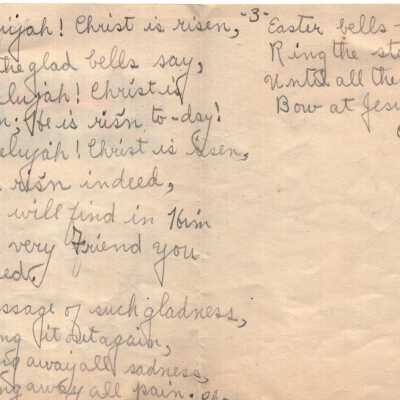 lujah! Christ is risen,
the glad bells say,
elujah! Christ is
n; He is risn to-day!
elujah! Christ is risen,
risn indeed,
will find in Him
very Friend you
eed.
essage of such gladness,
ng it out again,
ng away all sadness,
ng away all pain.
-3-
Easter bells-
Ring the st
Until all the
Bow at Jesu